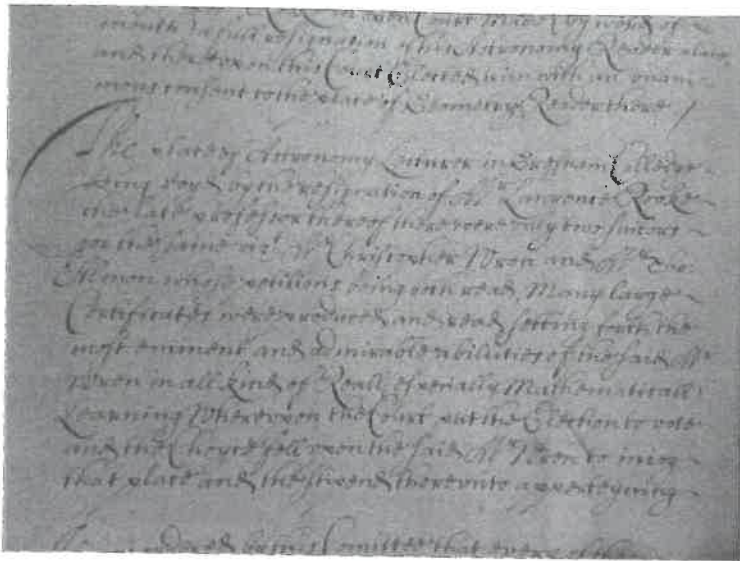 Rooke in open Court made by word of
mouth a full resignation of his Astronomy Reader place
and thereupon this Court elected him with an unani-
mous consent to the place of Geometry Reader there /
The place of Astronomy Lecturer in Gresham Colledge
being voyd by the resignation of Mr Lawrence Rooke
the late professor thereof there were only two suitors
for the same vizt Mr Christopher Wren and Mr
whose petitions being both read, Many large
Certificates were produced and read setting forth the
most eminent and admirable abilities of the said Mr
Wren in all kind of Reall especially Mathematicall
Learning Whereupon the Court put the Election to vote
and the Choyce fell upon the said Mr Wren to injoy
that place and the stipend thereunto apperteyning
Committee that every of the